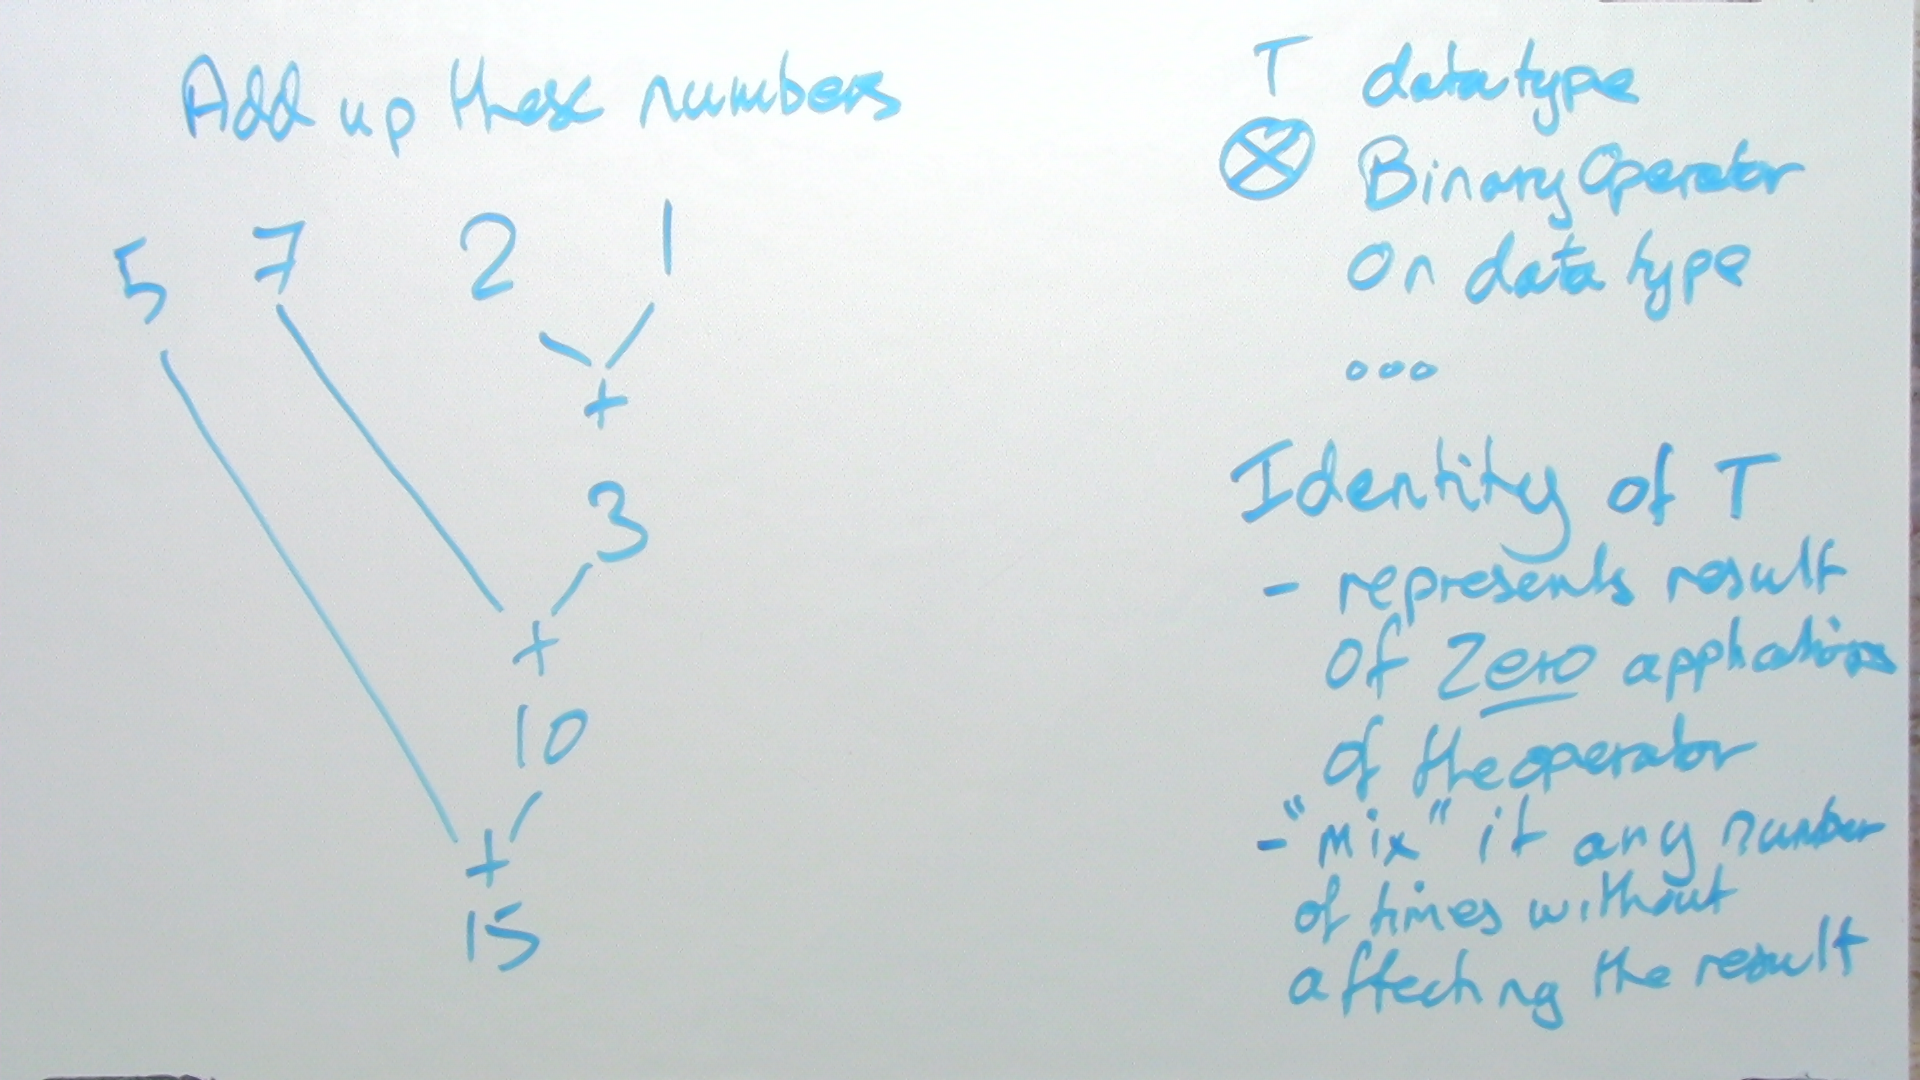 Add up these numbers
5 7 2 1
+
3
+
10
+
15
T datatype
⊗ Binary Operator
On data type
...
Identity of T
- represents result
of zero applications
of the operator
- "mix" it any number
of times without
affecting the result